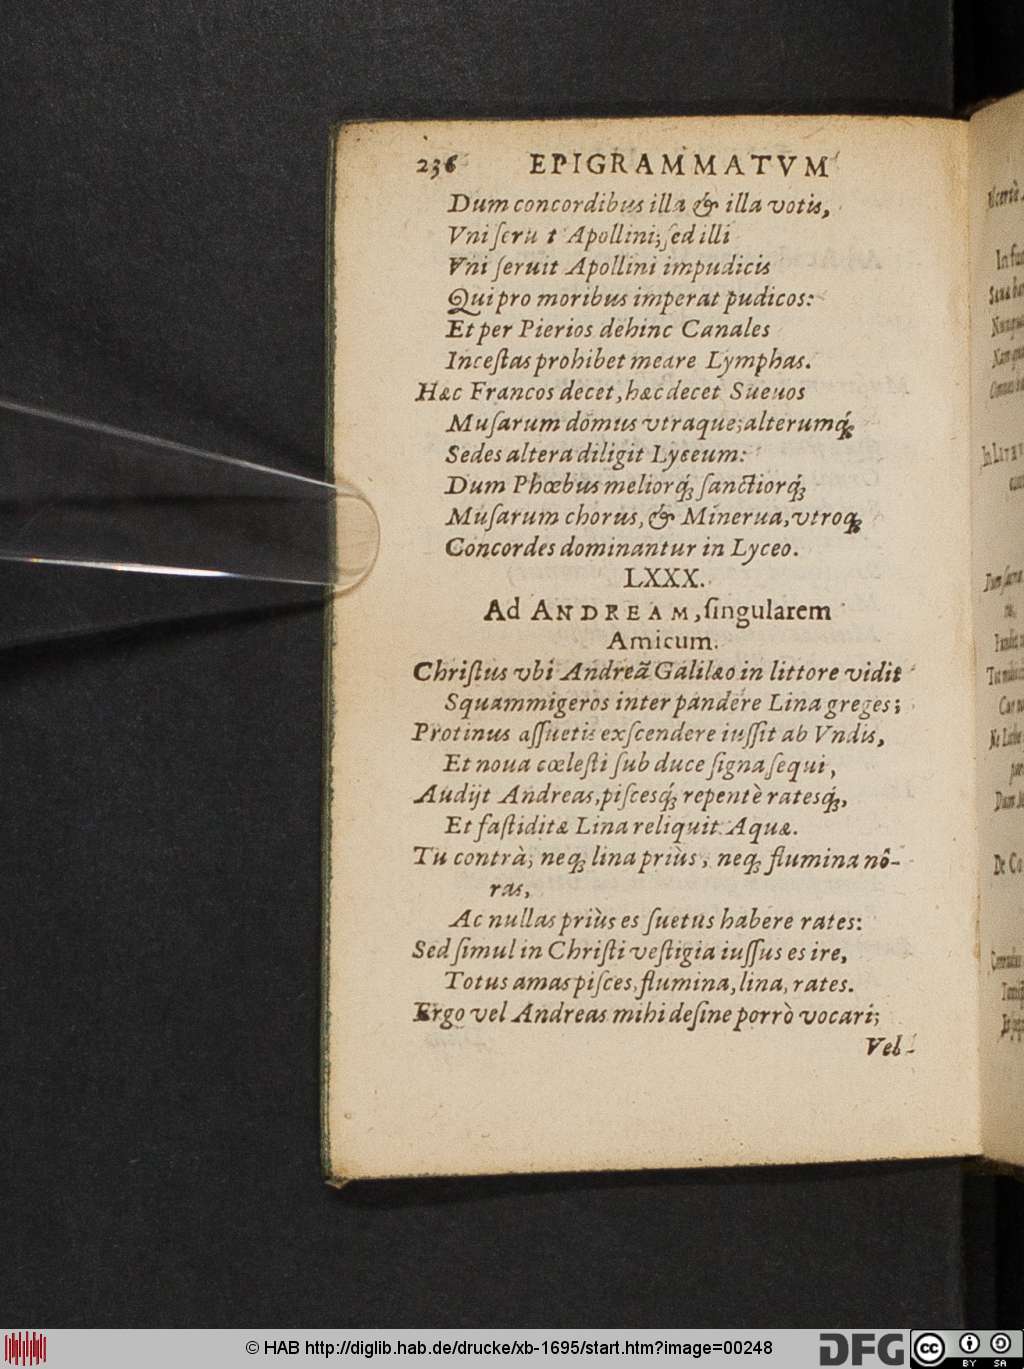 236 EPIGRAMMATVM
Dum concordibus illa & illa votis,
Vni seru t Apollini; sed illi
Vni seruit Apollini impudicis
Qui pro moribus imperat pudicos:
Et per Pierios dehinc Canales
Incestas prohibet meare Lymphas.
Hæc Francos decet, hæc decet Sueuos
Musarum domus vtraque; alterumq́;
Sedes altera diligit Lyceum:
Dum Phœbus meliorq́; sanctiorq́;
Musarum chorus, & Minerua, vtroq;
Concordes dominantur in Lyceo.
LXXX.
Ad ANDREAM, singularem
Amicum.
Christus vbi Andreã Galilæo in littore vidit
Squammigeros inter pandere Lina greges;
Protinus assuetis exscendere iussit ab Vndis,
Et noua cœlesti sub duce signa sequi,
Audijt Andreas, piscesq́; repentè ratesq́;,
Et fastiditæ Lina reliquit Aquæ.
Tu contrà; neq; lina priùs, neq; flumina nô-
ras,
Ac nullas priùs es suetus habere rates:
Sed simul in Christi vestigia iussus es ire,
Totus amas pisces, flumina, lina, rates.
Ergo vel Andreas mihi desine porrò vocari;
Vel
© HAB http://diglib.hab.de/drucke/xb-1695/start.htm?image=00248
DFG
cc
BY SA